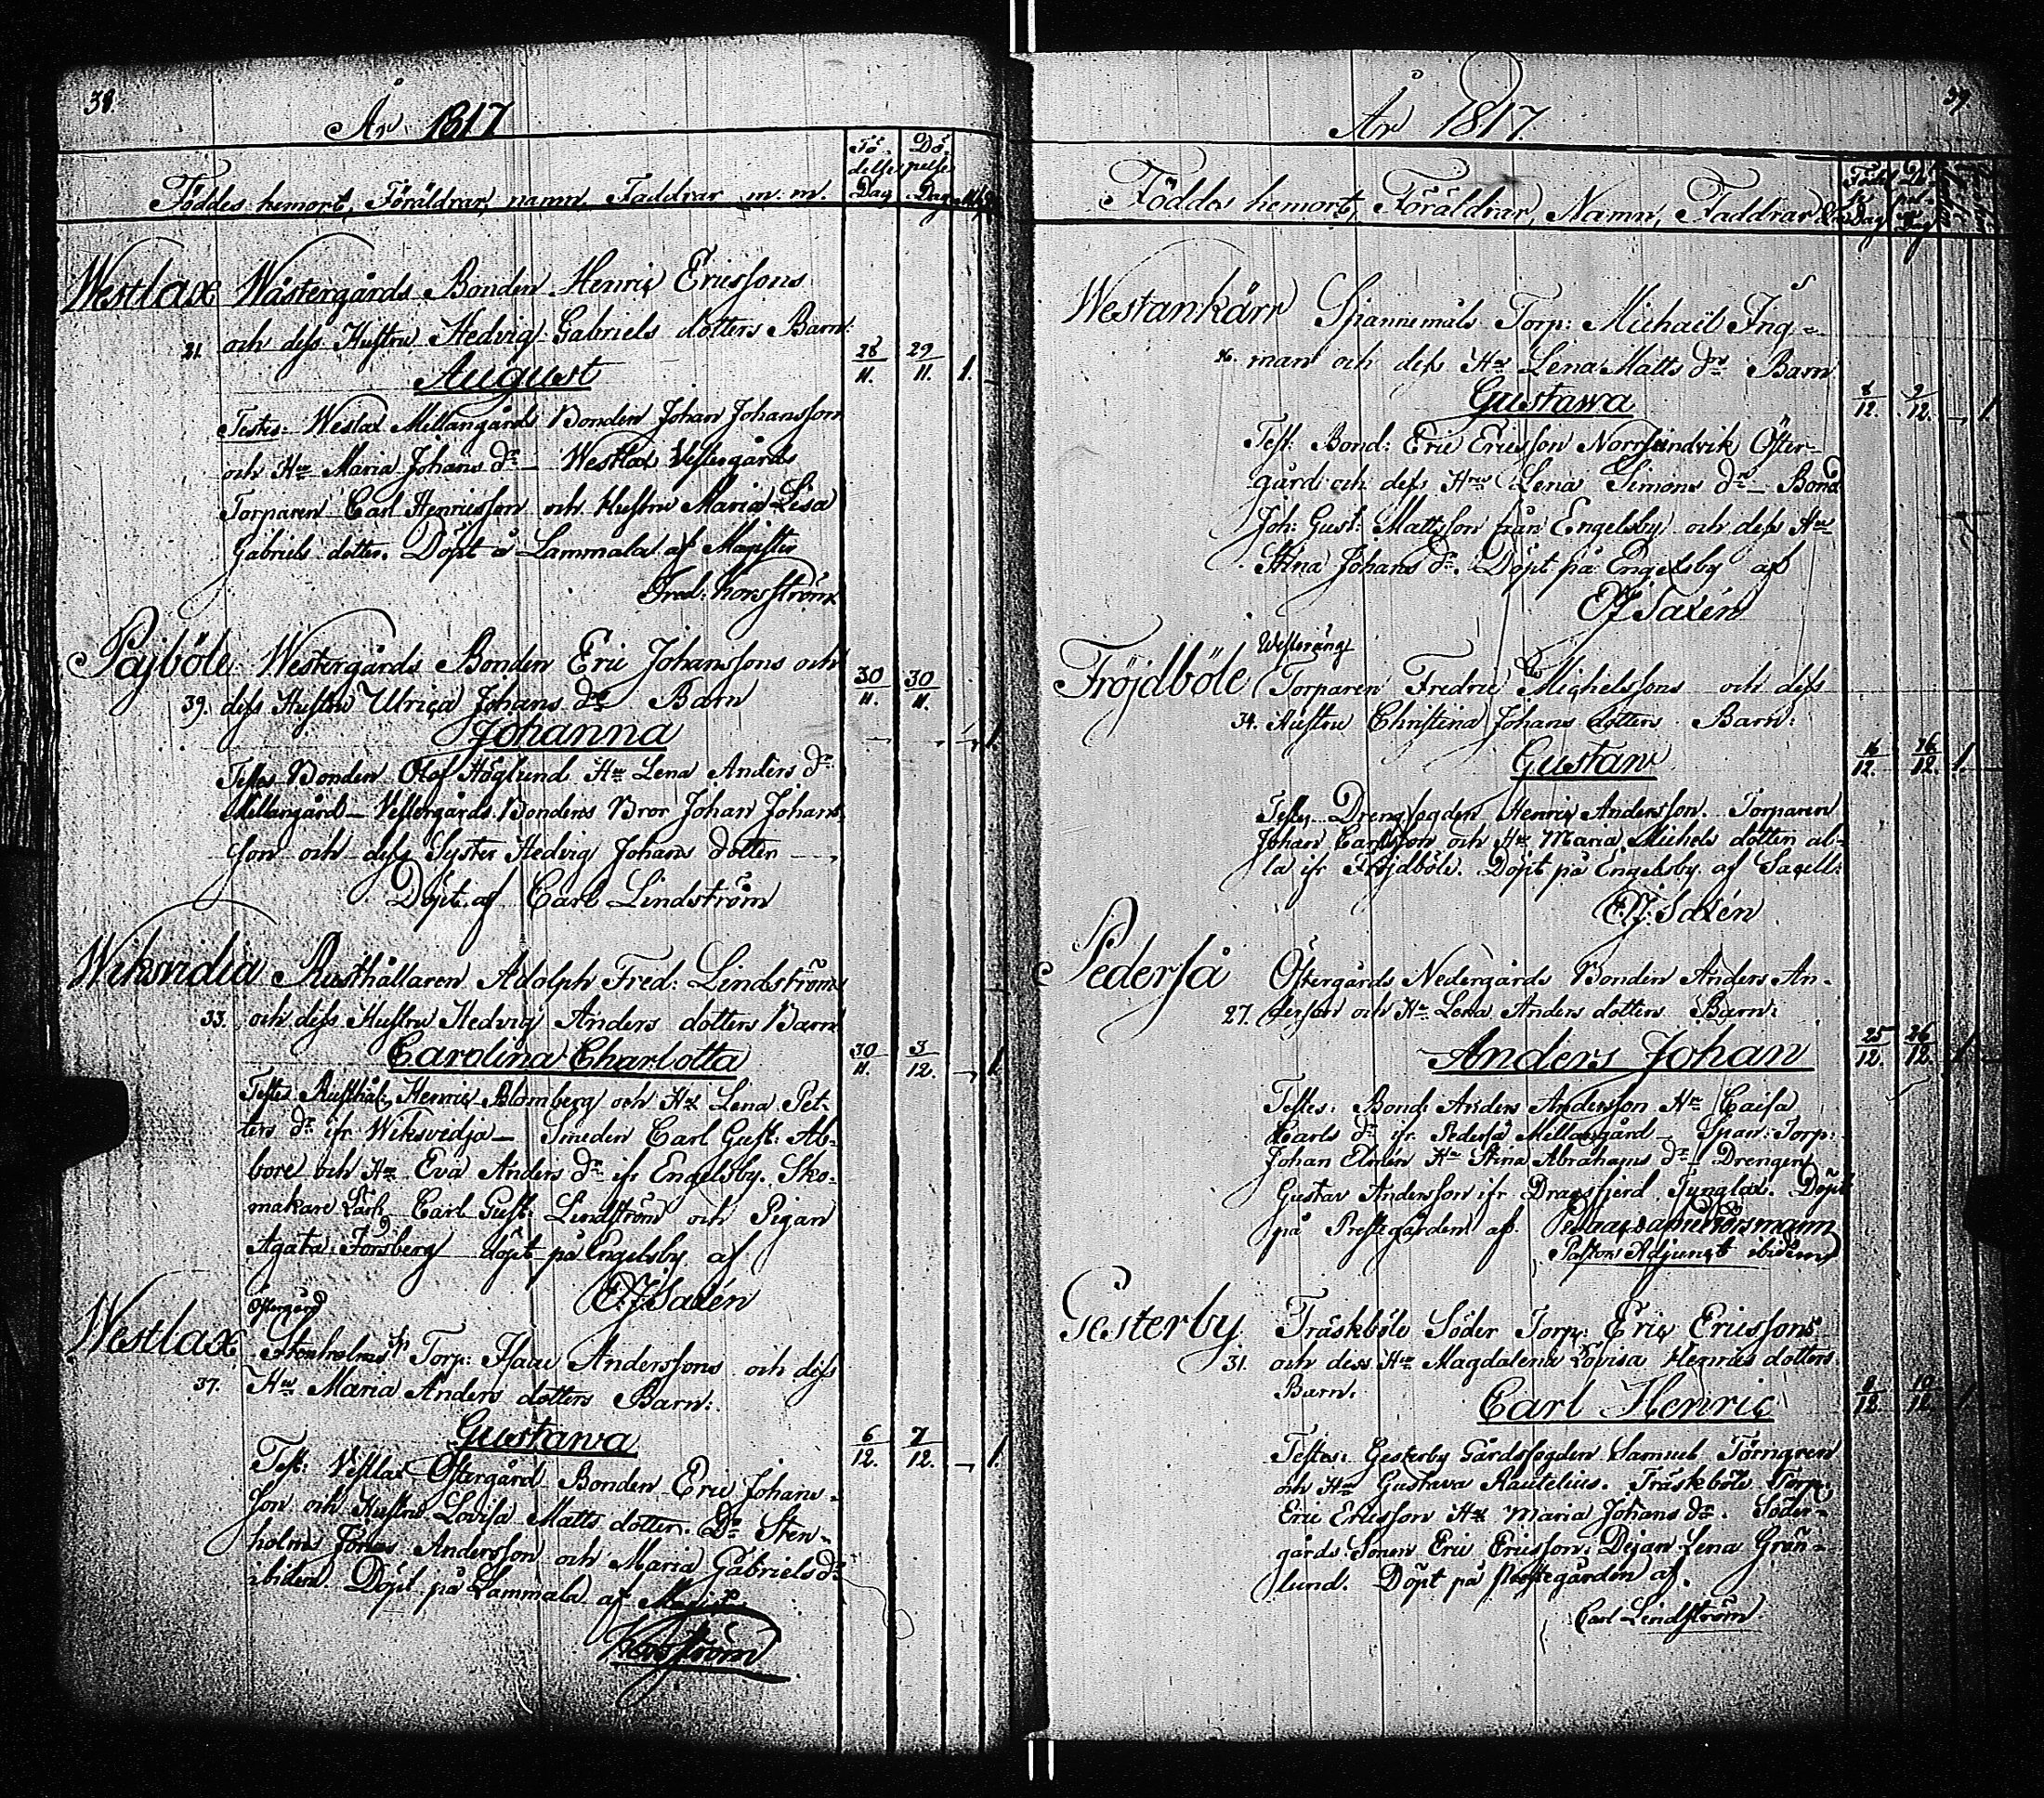 38.
År 1817
Föddes hemort, Föräldrar, namn, Faddrar m. m.
Fö-
delse
Dag
Dö
pelse
Dag
Westlax Wästergårds Bonden Henric Ericssons
21. och dess Hustru Hedvig Gabriels dotters Barn:
August 28/11. 29/11. 1.
Testes: Weslax Mellangårds Bonden Johan Johansson
och Hu Maria Johans dr — Westlax Vestergårds
Torparen Carl Henricsson och Hustru Maria Lisa
Gabriels dotter. Döpt å Lammala af Magister
Fred: Kors ström
Pajböle Westergårds Bonden Eric Johanssons och
39. dess Hustru Ulrica Johans drs Barn 30/11. 30/11.
Johanna 1.
Testes Bonden Olof Höglund Hu Lena Anders dr
Mellangård — Vestergårds Bondens Bror Johan Johans-
son och dess Syster Hedvig Johans dotter —
Döpt af Carl Lindström
Wiksvidia Rusthållaren Adolph Fred: Lindströms
33. och dess Hustru Hedvig Anders dotters Barn
Carolina Charlotta 30/11. 3/12. 1.
Testes Rusthål: Henric Blomberg och Hu Lena Pet-
ters dr ifr Wiksvidja — Smeden Carl Gust: Ab-
bore och Hu Eva Anders dr ifr Engelsby. Sko-
makare Carl Gust: Lindström och Pigan
Agata Forsberg döpt på Engelsby af
E.J. Saxén
Östergård
Westlax Stenholms Torp: Isaac Anderssons och dess
37. Hus Maria Anders dotters Barn:
Gustawa 6/12. 7/12. 1.
Test: Vestlax Östergård Bonden Eric Johans-
son och Hustru Lovisa Matts dotter. Do Sten-
holms Jonas Andersson och Maria Gabriels dr
ibidem. Döpt på Lammala af Magist
Korsström
39
År 1817.
Föddes hemort, Föräldrar, Namn, Faddrar
Westankärr Spannemåls Torp: Michaël Ing-
26. man och dess Hus Lena Matts drs Barn
Gustawa 8/12. 9/12. 1.
Test: Bond: Eric Ericsson Norrsundvik Öster-
gård och dess Hru Lena Simons dr — Bond
Joh: Gust: Mattsson från Engelsby och dess Hu
Stina Johans dr. Döpt på Engelsby af
EJ Saxén
Westeräng
Fröjdböle Torparen Fredric Michelssons och dess
34. Hustru Christina Johans dotters Barn:
Gustav 16/12. 26/12. 1.
Testes Drengfogden Henric Andersson. Torparen
Johan Carlsson och Hu Maria Michels dotter al-
la ifr Fröjdböle. Döpt på Engelsby af Sacell:
E.J. Saxén
Pederså Östergårds Nedergårds Bonden Anders An-
27. dersson och Hu Lena Anders dotters Barn:
Anders Johan 25/12. 26/12. 1.
Testes: Bond: Anders Andersson Hu Caisa
Carls dr ifr Pederså Mellangård — Span: Torp:
Johan Elmén Hu Stina Abrahams dr — Drengen
Gustav Andersson ifr Dragsfjerd Tynglax. Döpt
på Prestegården af
Pastors Adjunct ibidem
Gesterby Träskböle Söder Torp: Eric Ericssons
31. och dess Hu Magdalena Lovisa Henrics dotters
Barn.
Carl Henric 8/12. 10/12. 1.
Testes: Gesterby Gårdsfogden Samuel Törngren
och Hu Gustava Rautelius. Träskböle Torp:
Eric Ericsson Hu Maria Johans dr. Söder-
gårds Sonen Eric Ericsson. Dejan Lena Grön-
lund. Döpt på Prestegården af.
Carl Lindström